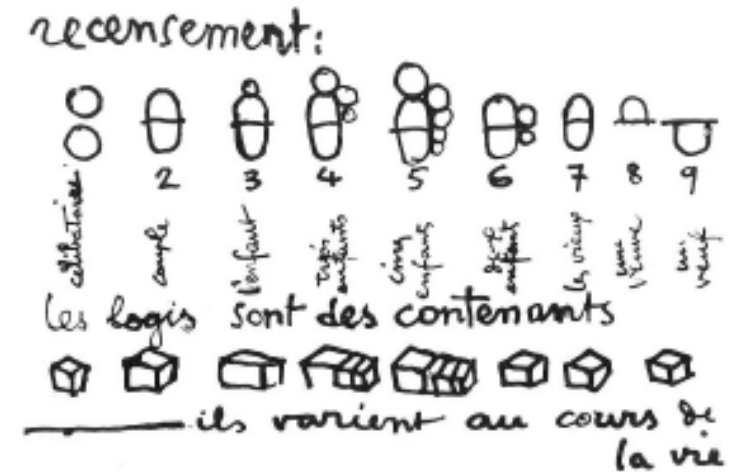 recensement:
2 3 4 5 6 7 8 9
célibataires couple l'enfant trois enfants cinq enfants deux enfants les vieux une veuve un veuf
les logis sont des contenants
ils varient au cours de
la vie